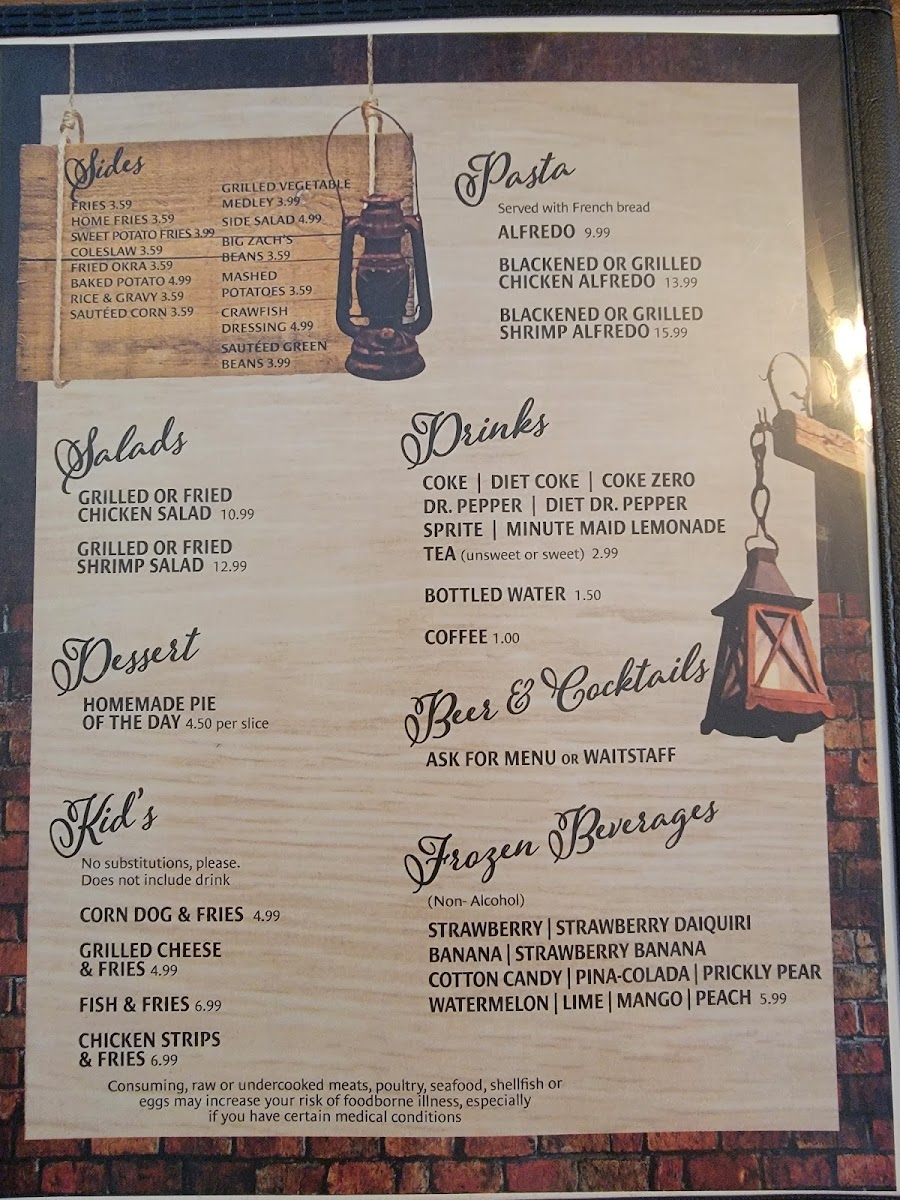 Sides
FRIES 3.59
HOME FRIES 3.59
SWEET POTATO FRIES 3.99
COLESLAW 3.59
FRIED OKRA 3.59
BAKED POTATO 4.99
RICE & GRAVY 3.59
SAUTÉED CORN 3.59
GRILLED VEGETABLE
MEDLEY 3.99
SIDE SALAD 4.99
BIG ZACH'S
BEANS 3.59
MASHED
POTATOES 3.59
CRAWFISH
DRESSING 4.99
SAUTÉED GREEN
BEANS 3.99
Pasta
Served with French bread
ALFREDO 9.99
BLACKENED OR GRILLED
CHICKEN ALFREDO 13.99
BLACKENED OR GRILLED
SHRIMP ALFREDO 15.99
Salads
GRILLED OR FRIED
CHICKEN SALAD 10.99
GRILLED OR FRIED
SHRIMP SALAD 12.99
Drinks
COKE | DIET COKE | COKE ZERO
DR. PEPPER | DIET DR. PEPPER
SPRITE | MINUTE MAID LEMONADE
TEA (unsweet or sweet) 2.99
BOTTLED WATER 1.50
COFFEE 1.00
Dessert
HOMEMADE PIE
OF THE DAY 4.50 per slice
Beer & Cocktails
ASK FOR MENU OR WAITSTAFF
Kid's
No substitutions, please.
Does not include drink
CORN DOG & FRIES 4.99
GRILLED CHEESE
& FRIES 4.99
FISH & FRIES 6.99
CHICKEN STRIPS
& FRIES 6.99
Frozen Beverages
(Non- Alcohol)
STRAWBERRY | STRAWBERRY DAIQUIRI
BANANA | STRAWBERRY BANANA
COTTON CANDY | PINA-COLADA | PRICKLY PEAR
WATERMELON | LIME | MANGO | PEACH 5.99
Consuming, raw or undercooked meats, poultry, seafood, shellfish or
eggs may increase your risk of foodborne illness, especially
if you have certain medical conditions